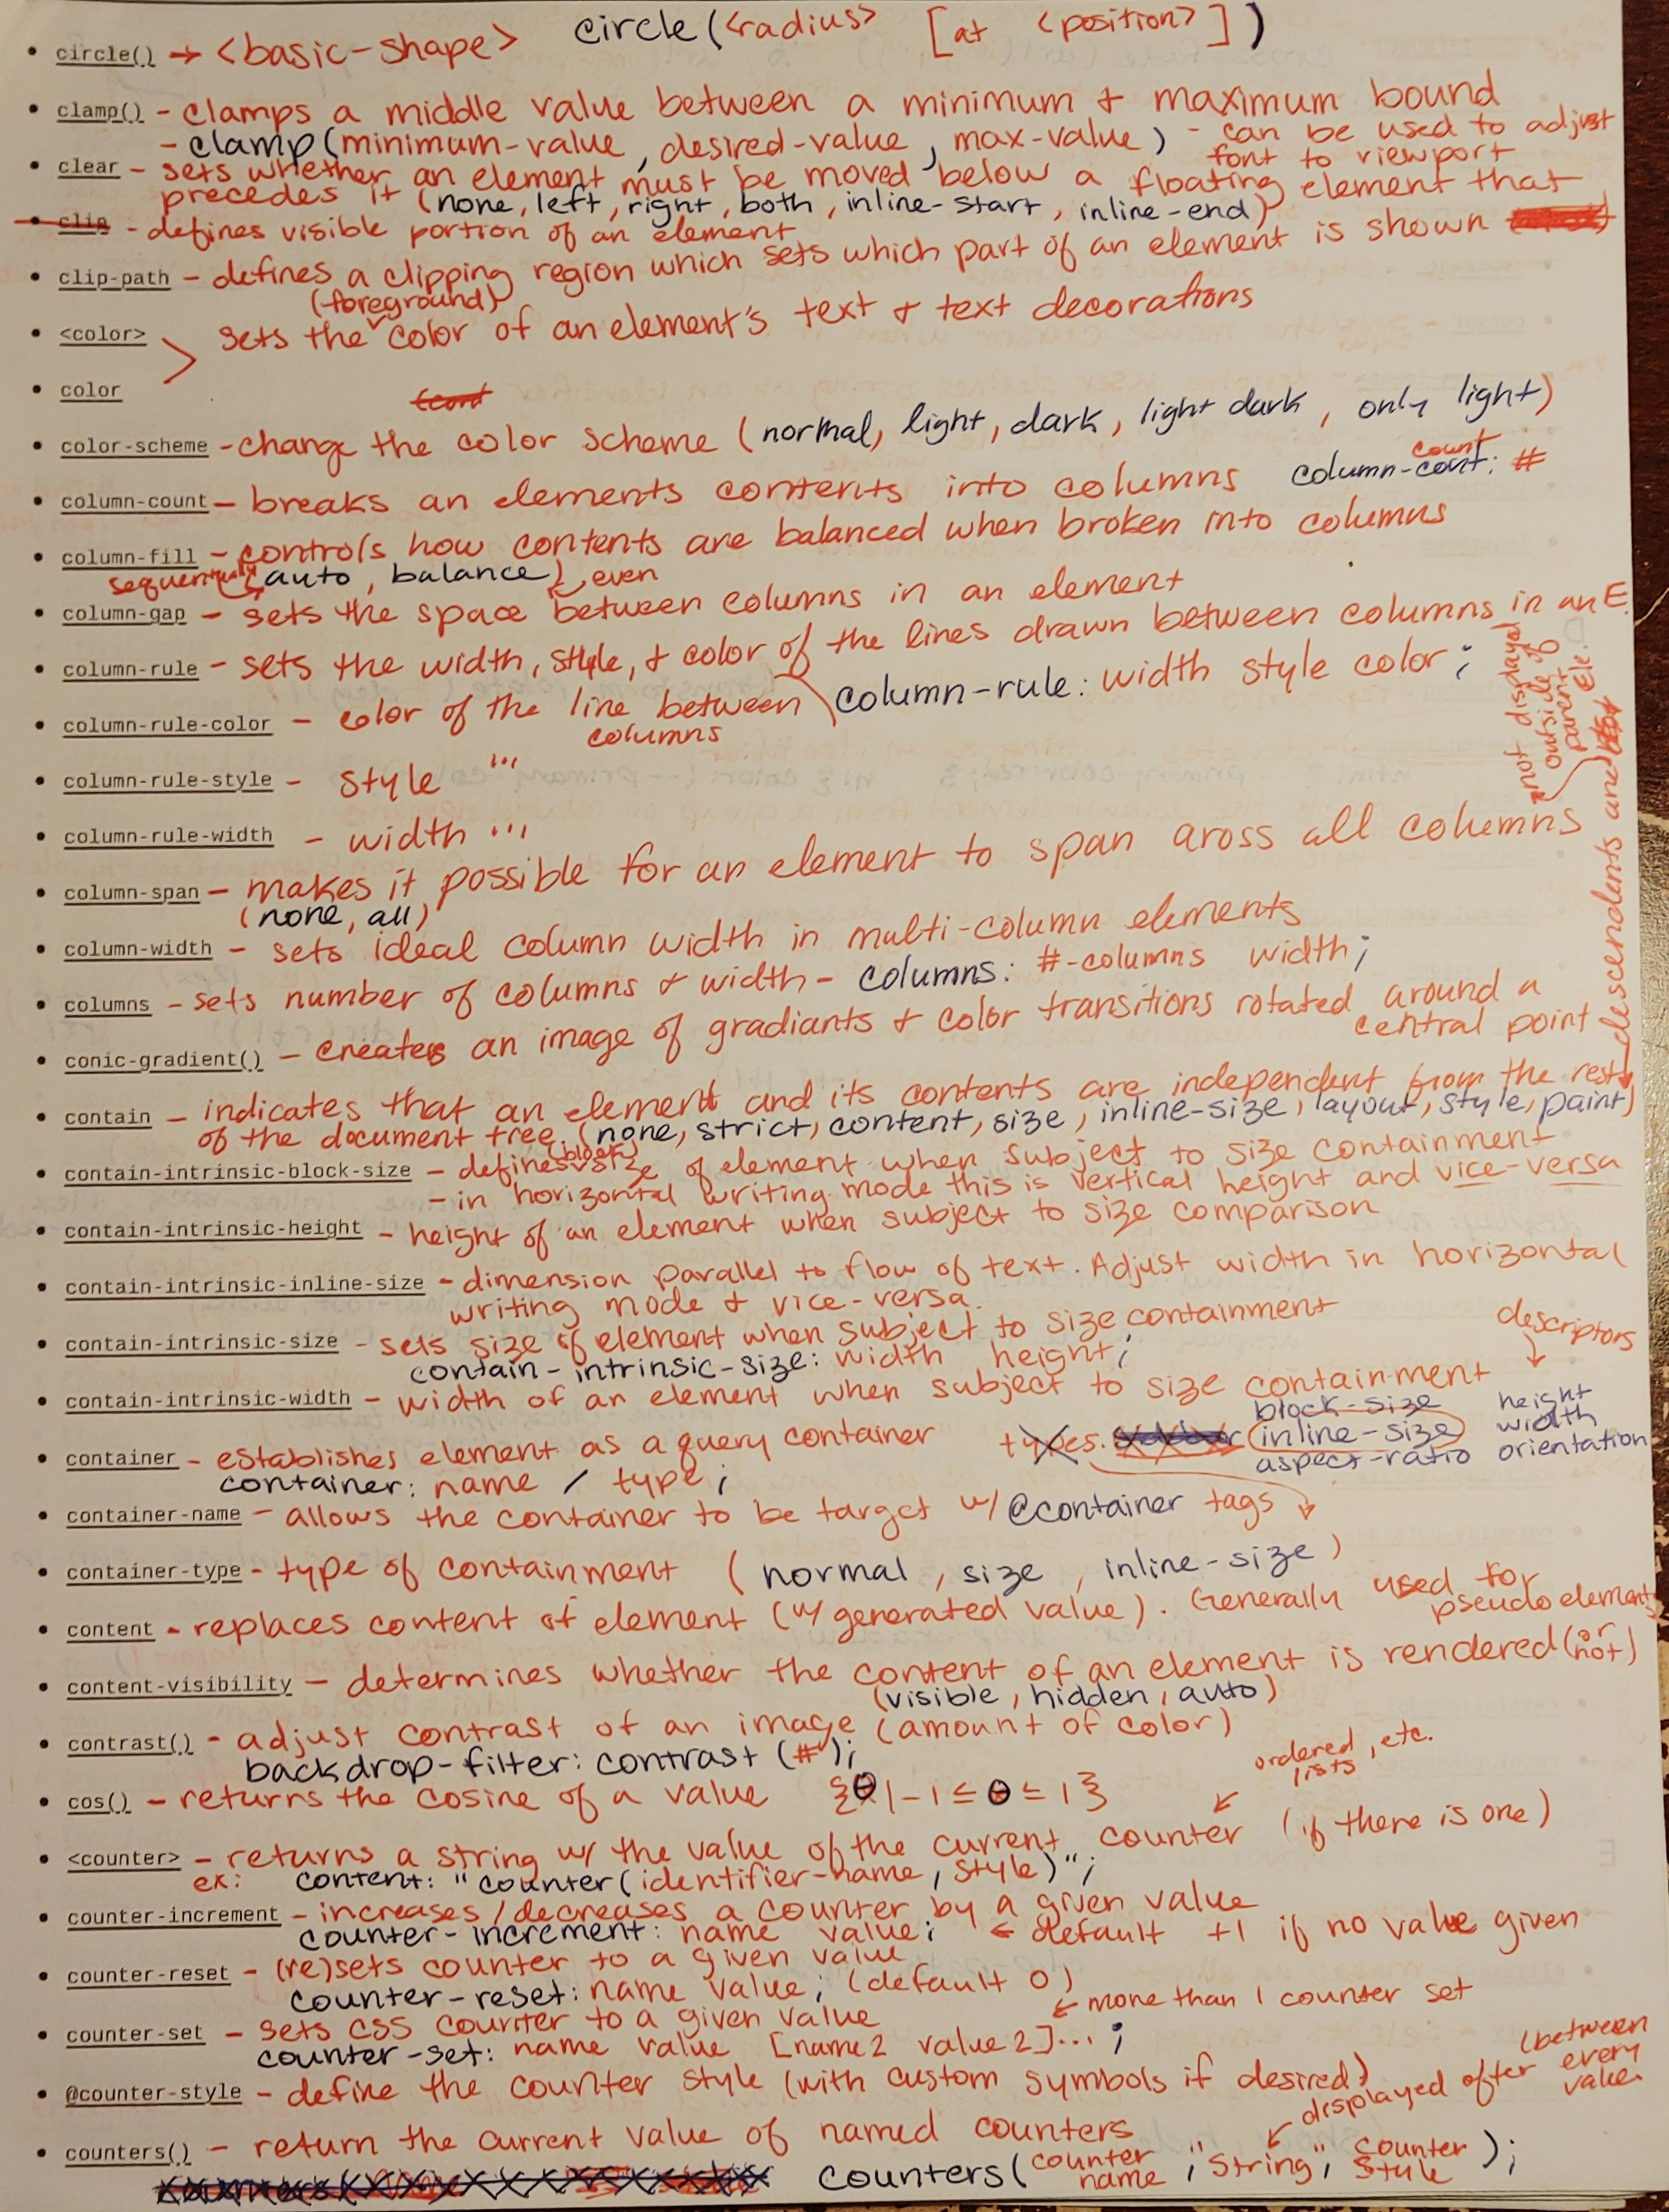 • circle() → <basic-shape> circle(<radius> [at <position>])
• clamp() - clamps a middle value between a minimum + maximum bound
- clamp(minimum-value, desired-value, max-value) - can be used to adjust
font to viewport
• clear - sets whether an element must be moved below a floating element that
precedes it (none, left, right, both, inline-start, inline-end)
• clip - defines visible portion of an element
• clip-path - defines a clipping region which sets which part of an element is shown
(foreground)
• <color> > sets the color of an element's text + text decorations
• color
• color-scheme - change the color scheme (normal, light, dark, light dark, only light)
count
• column-count - breaks an elements contents into columns column-cont: #
• column-fill - controls how contents are balanced when broken into columns
sequentially (auto, balance) even
• column-gap - sets the space between columns in an element
• column-rule - sets the width, style, + color of the lines drawn between columns in an E.
column-rule: width style color;
• column-rule-color - color of the line between
columns
• column-rule-style - style "'
• column-rule-width - width "'
• column-span - makes it possible for an element to span aross all columns
(none, all)
• column-width - sets ideal column width in multi-column elements
• columns - sets number of columns + width - columns: #-columns width;
• conic-gradient() - creates an image of gradiants + color transitions rotated around a
central point
not displayed
outside of
parent
Ele.
descendents are
• contain - indicates that an element and its contents are independent from the rest
of the document tree. (none, strict, content, size, inline-size, layout, style, paint)
(block)
• contain-intrinsic-block-size - defines size of element when subject to size containment
- in horizontal writing mode this is vertical height and vice-versa
• contain-intrinsic-height - height of an element when subject to size comparison
• contain-intrinsic-inline-size - dimension parallel to flow of text. Adjust width in horizontal
writing mode + vice-versa.
• contain-intrinsic-size - sets size of element when subject to size containment
contain-intrinsic-size: width height;
• contain-intrinsic-width - width of an element when subject to size containment
descriptors
block-size height
inline-size width
aspect-ratio orientation
types.
• container - establishes element as a query container
container: name / type;
• container-name - allows the container to be target w/ @container tags
• container-type - type of containment (normal, size, inline-size)
• content - replaces content of element (w/ generated value). Generally used for
pseudo elements
• content-visibility - determines whether the content of an element is rendered (or not)
(visible, hidden, auto)
• contrast() - adjust contrast of an image (amount of color)
backdrop-filter: contrast(#);
• cos() - returns the cosine of a value {θ|-1 ≤ θ ≤ 1}
ordered lists, etc.
• <counter> - returns a string w/ the value of the current counter (if there is one)
ex: content: "counter(identifier-name, style)";
• counter-increment - increases/decreases a counter by a given value
counter-increment: name value; ← default +1 if no value given
• counter-reset - (re)sets counter to a given value
counter-reset: name value; (default 0)
• counter-set - sets CSS counter to a given value
counter-set: name value [name2 value2]...; ← more than 1 counter set
• @counter-style - define the counter style (with custom symbols if desired)
displayed after every value
(between
• counters() - return the current value of named counters
counters(counter name, "string", counter style);